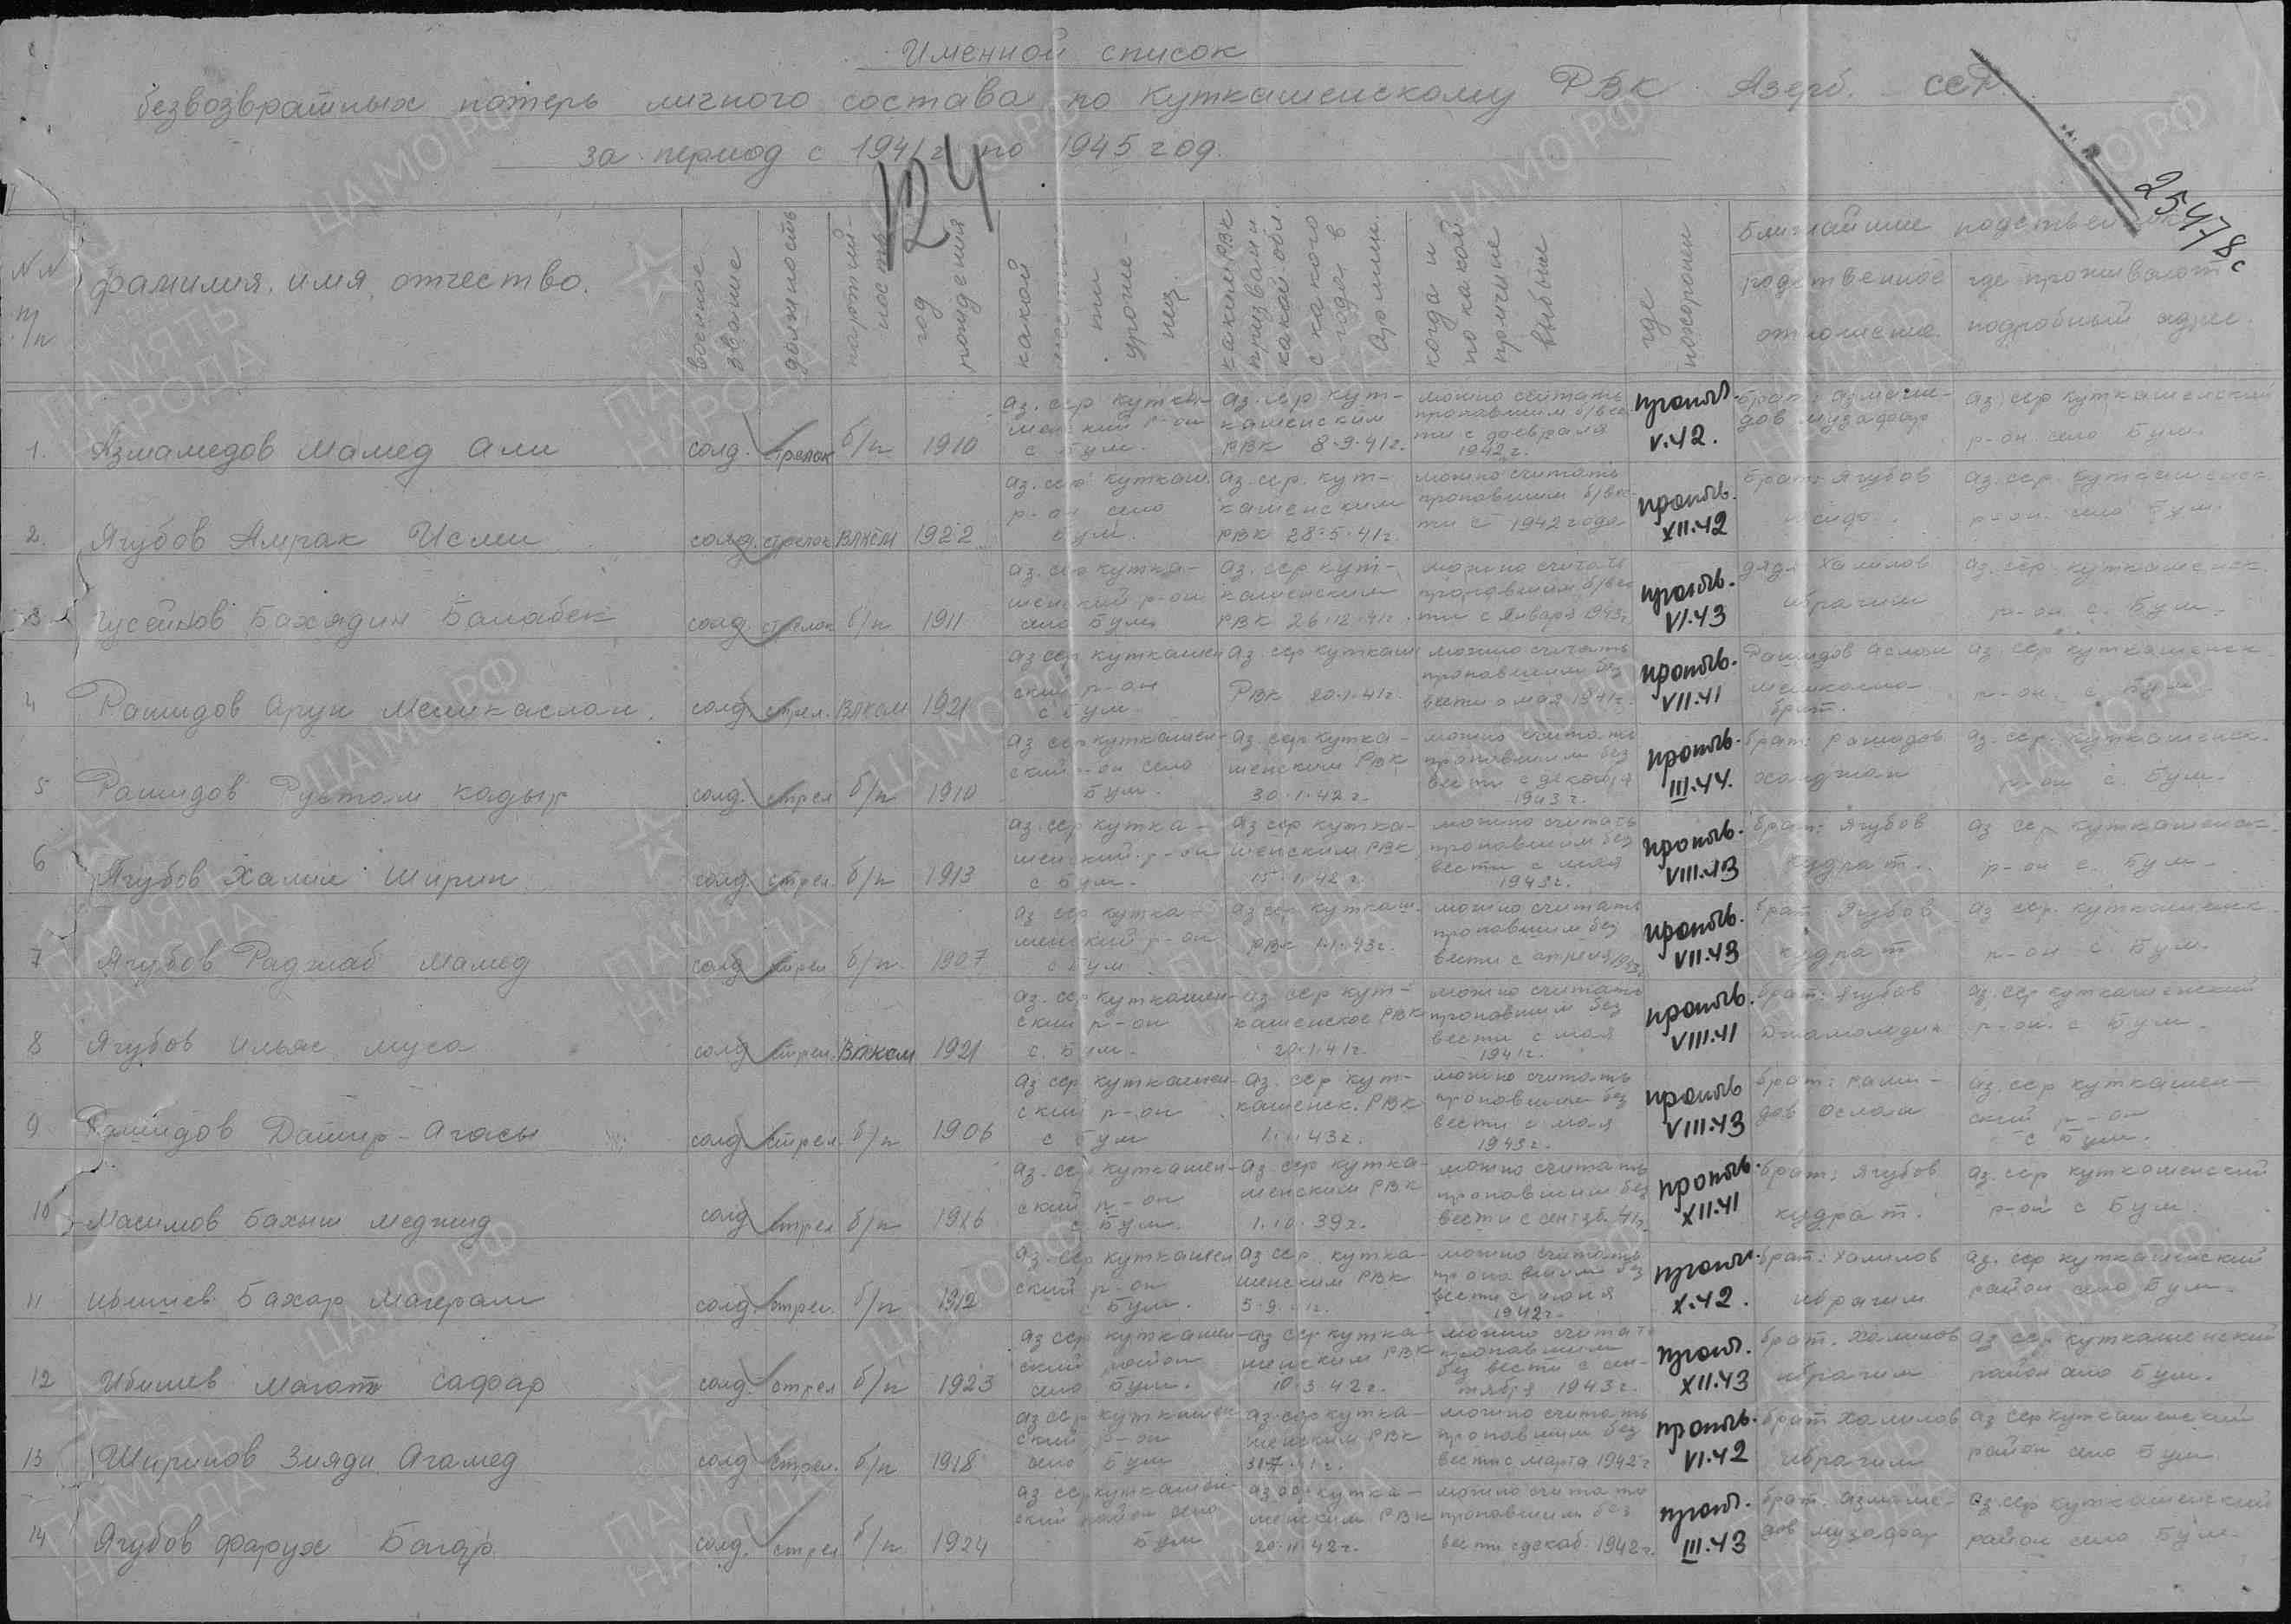 Именной список
безвозвратных потерь личного состава по Куткашенскому РВК Азерб. ССР
за период с 1941 г по 1945 год.
124
25478с
NN п/п
фамилия, имя, отчество.
военное звание
должность
партийность
год рождения
какой местности уроженец
каким РВК призван и какой обл. с какого года в армии.
когда и по какой причине выбыл
где похоронен
Ближайшие
родственное отношение.
где проживают подробный адрес.
1. Азмамедов Мамед Али солд. стрелок б/п 1910 аз. сср куткашенский р-он с Бум. аз. сср куткашенским РВК 8.9.41г. можно считать пропавшим б/вести с февраля 1942 г. проп. V.42. брат: Азмамедов музафар аз сср куткашенский р-он село Бум.
2. Ягубов Амрак Исми солд. стрелок ВЛКСМ 1922 аз. сср куткаш. р-он село Бум. аз. сср. куткашенским РВК 28.5.41г. можно считать пропавшим б/вести с 1942 года проп. XII.42 брат: Ягубов аз. сср. куткашенск. р-он. село Бум.
3 Гусейнов Бахядин Балабек солд. стрелок б/п 1911 аз. сср куткашенский р-он село Бум аз. сср куткашенским РВК 26.12.41г. можно считать пропавшим б/вести с января 1943г проп. VI.43 дядя Халилов ибрагим аз. сср. куткашенск. р-он с. Бум.
4 Рашидов Арун Меликаслан. солд. стрел. ВЛКСМ 1921 аз сср куткашенский р-он с Бум. аз. сср куткаш РВК 20.1.41г. можно считать пропавшим без вести с мая 1941г. проп. VII.41 Рашидов Аслан брат. аз. сср куткашенск. р-он. с. Бум.
5 Рашидов Рустам кадыр солд. стрел б/п 1910 аз сср куткашенский р-он село Бум. аз сср куткашенским РВК 30.1.42 г. можно считать пропавшим без вести с декабря 1943 г. проп. III.44. брат: рашидов аз. сср. куткашенск. р-он с. Бум.
6 Ягубов Халил Ширин солд стрел. б/п 1913 аз. сср куткашенский р-он с Бум. аз сср куткашенским РВК 15.1.42 г. можно считать пропавшим без вести с 1943г. проп. VIII.43 брат: Ягубов кудрат. аз сср куткашенск. р-он с. Бум.
7 Ягубов Раджаб Мамед солд стрел б/п 1907 аз сср куткашенский р-он с Бум аз сср куткаш. РВК 1.1.43г. можно считать пропавшим без вести с апреля 1943г. проп. VII.43 брат: Ягубов кудрат аз сср. куткашенск. р-он с. Бум.
8 Ягубов Ильяс муса солд стрел. ВЛКСМ 1921 аз. сср куткашенский р-он с. Бум. аз сср куткашенское РВК 20.1.41г. можно считать пропавшим без вести с мая 1941г. проп. VIII.41 брат: Ягубов аз. сср куткашенский р-он. с Бум.
9 Рашидов Дашир-Агасы солд стрел. б/п 1906 аз сср куткашенский р-он с Бум аз. сср куткашенск. РВК 1.1.43г. можно считать пропавшим без вести с мая 1943г. проп VIII.43 брат: рашидов аслан аз. сср куткашенский р-он с Бум.
10 Масимов Бахыш Меджид солд стрел б/п 1916 аз. сср куткашенский р-он с Бум. аз. сср куткашенским РВК 1.10.39г. можно считать пропавшим без вести с сентяб. 41г. проп. XII.41 брат: Ягубов кудрат. аз. сср куткашенский р-он с Бум.
11 Ибишев Бахар Магерам солд. стрел. б/п 1912 аз. сср куткашенский р-он с Бум. аз сср. куткашенским РВК можно считать пропавшим без вести с июня 1942г. проп. X.42. брат: Халилов ибрагим аз. сср куткашенский район село Бум.
12 Ибишев Сафар солд. стрел б/п 1923 аз сср куткашенский район село Бум. аз сср куткашенским РВК 10.3.42г. можно считать пропавшим без вести с сентября 1943г. проп. XII.43 брат. Халилов ибрагим аз сср куткашенский район село Бум.
13 Ширинов Зияди Агамед солд стрел. б/п 1918 аз сср куткашенский р-он село Бум аз. сср куткашенским РВК можно считать пропавшим без вести с марта 1942г проп. VI.42 брат Халилов ибрагим аз сср куткашенский район село Бум
14 Ягубов Фарух солд. стрел. б/п 1924 аз сср куткашенский район село Бум аз сср куткашенским РВК 20.11.42г. можно считать пропавшим без вести с декаб. 1942г. проп. III.43 брат. азмамедов музафар аз. сср куткашенский район село Бум.
ЦАМО РФ
ПАМЯТЬ НАРОДА